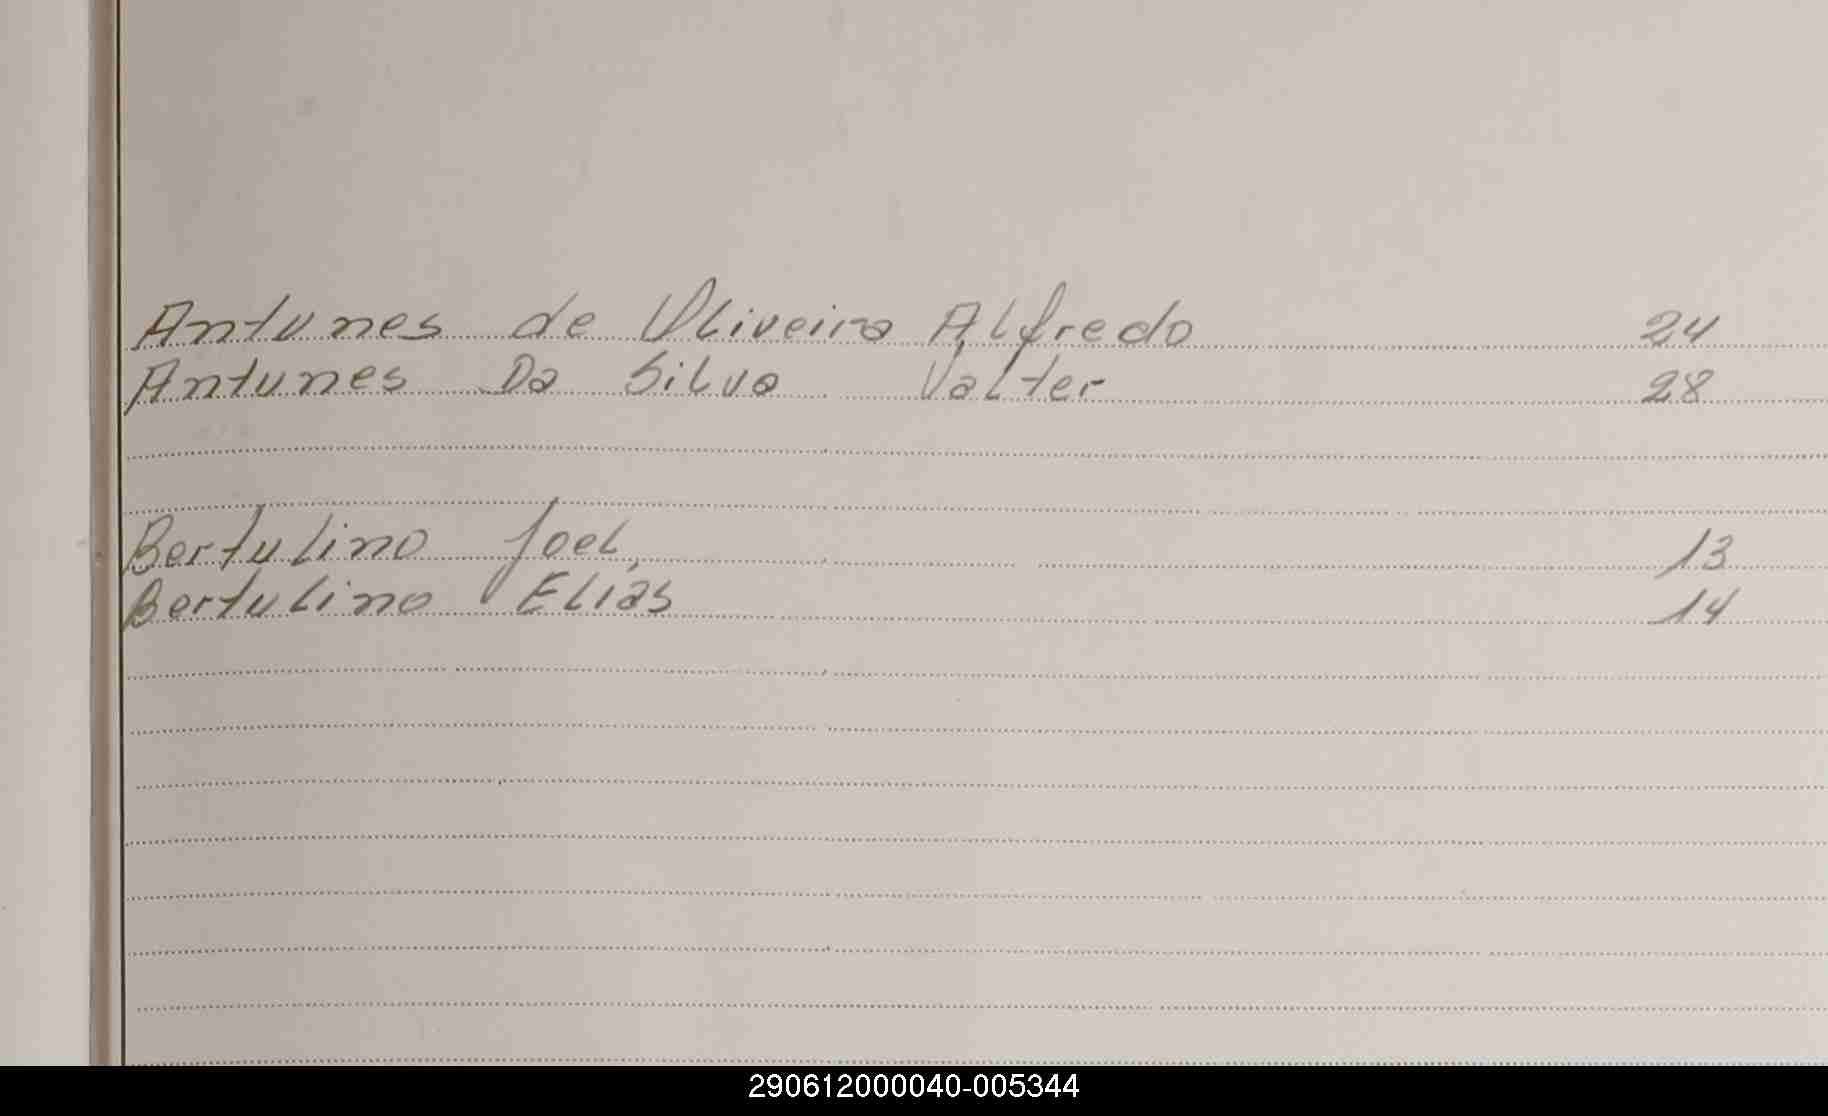 Antunes de Oliveira Alfredo 24
Antunes Da Silva Valter 28
Bertulino Joel 13
Bertulino Elias 14
290612000040-005344